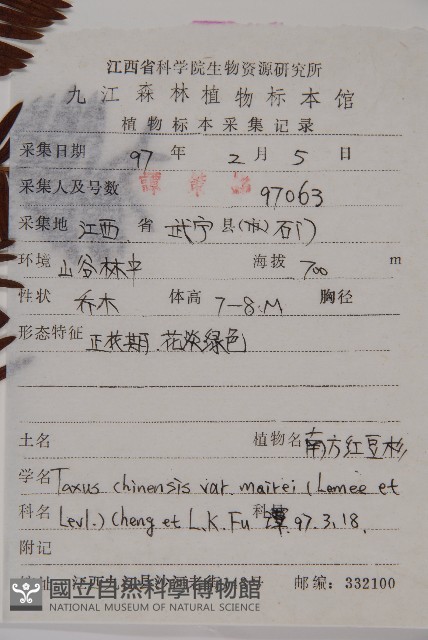 江西省科学院生物资源研究所
九江森林植物标本馆
植物标本采集记录
采集日期 97 年 2 月 5 日
采集人及号数 97063
采集地 江西 省 武宁 县(市) 石门
环境 山谷林中 海拨 700 m
性状 乔木 体高 7-8.M 胸径
形态特征 正花期 花淡绿色
土名 植物名 南方红豆杉
学名 Taxus chinensis var. mairei (Lemee et
科名 Levl.) Cheng et L.K.Fu 科 谭 97.3.18.
附记
江西九江县沙河老街 号 邮编：332100
國立自然科學博物館
NATIONAL MUSEUM OF NATURAL SCIENCE